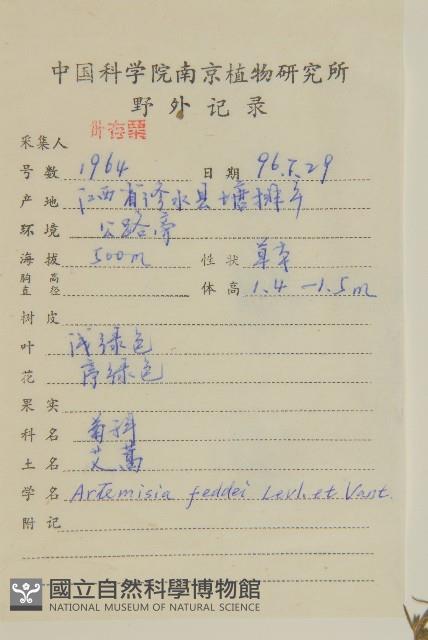 中国科学院南京植物研究所
野外记录
采集人 叶存粟
号数 1964 日期 96.5.29
产地 江西省修水县塘排乡
环境 公路旁
海拔 500m 性状 草本
胸高直径 体高 1.4-1.5m
树皮
叶 浅绿色
花 绿色
果实
科名 菊科
土名 艾蒿
学名 Artemisia feddei Levl. et Vant.
附记
國立自然科學博物館
NATIONAL MUSEUM OF NATURAL SCIENCE